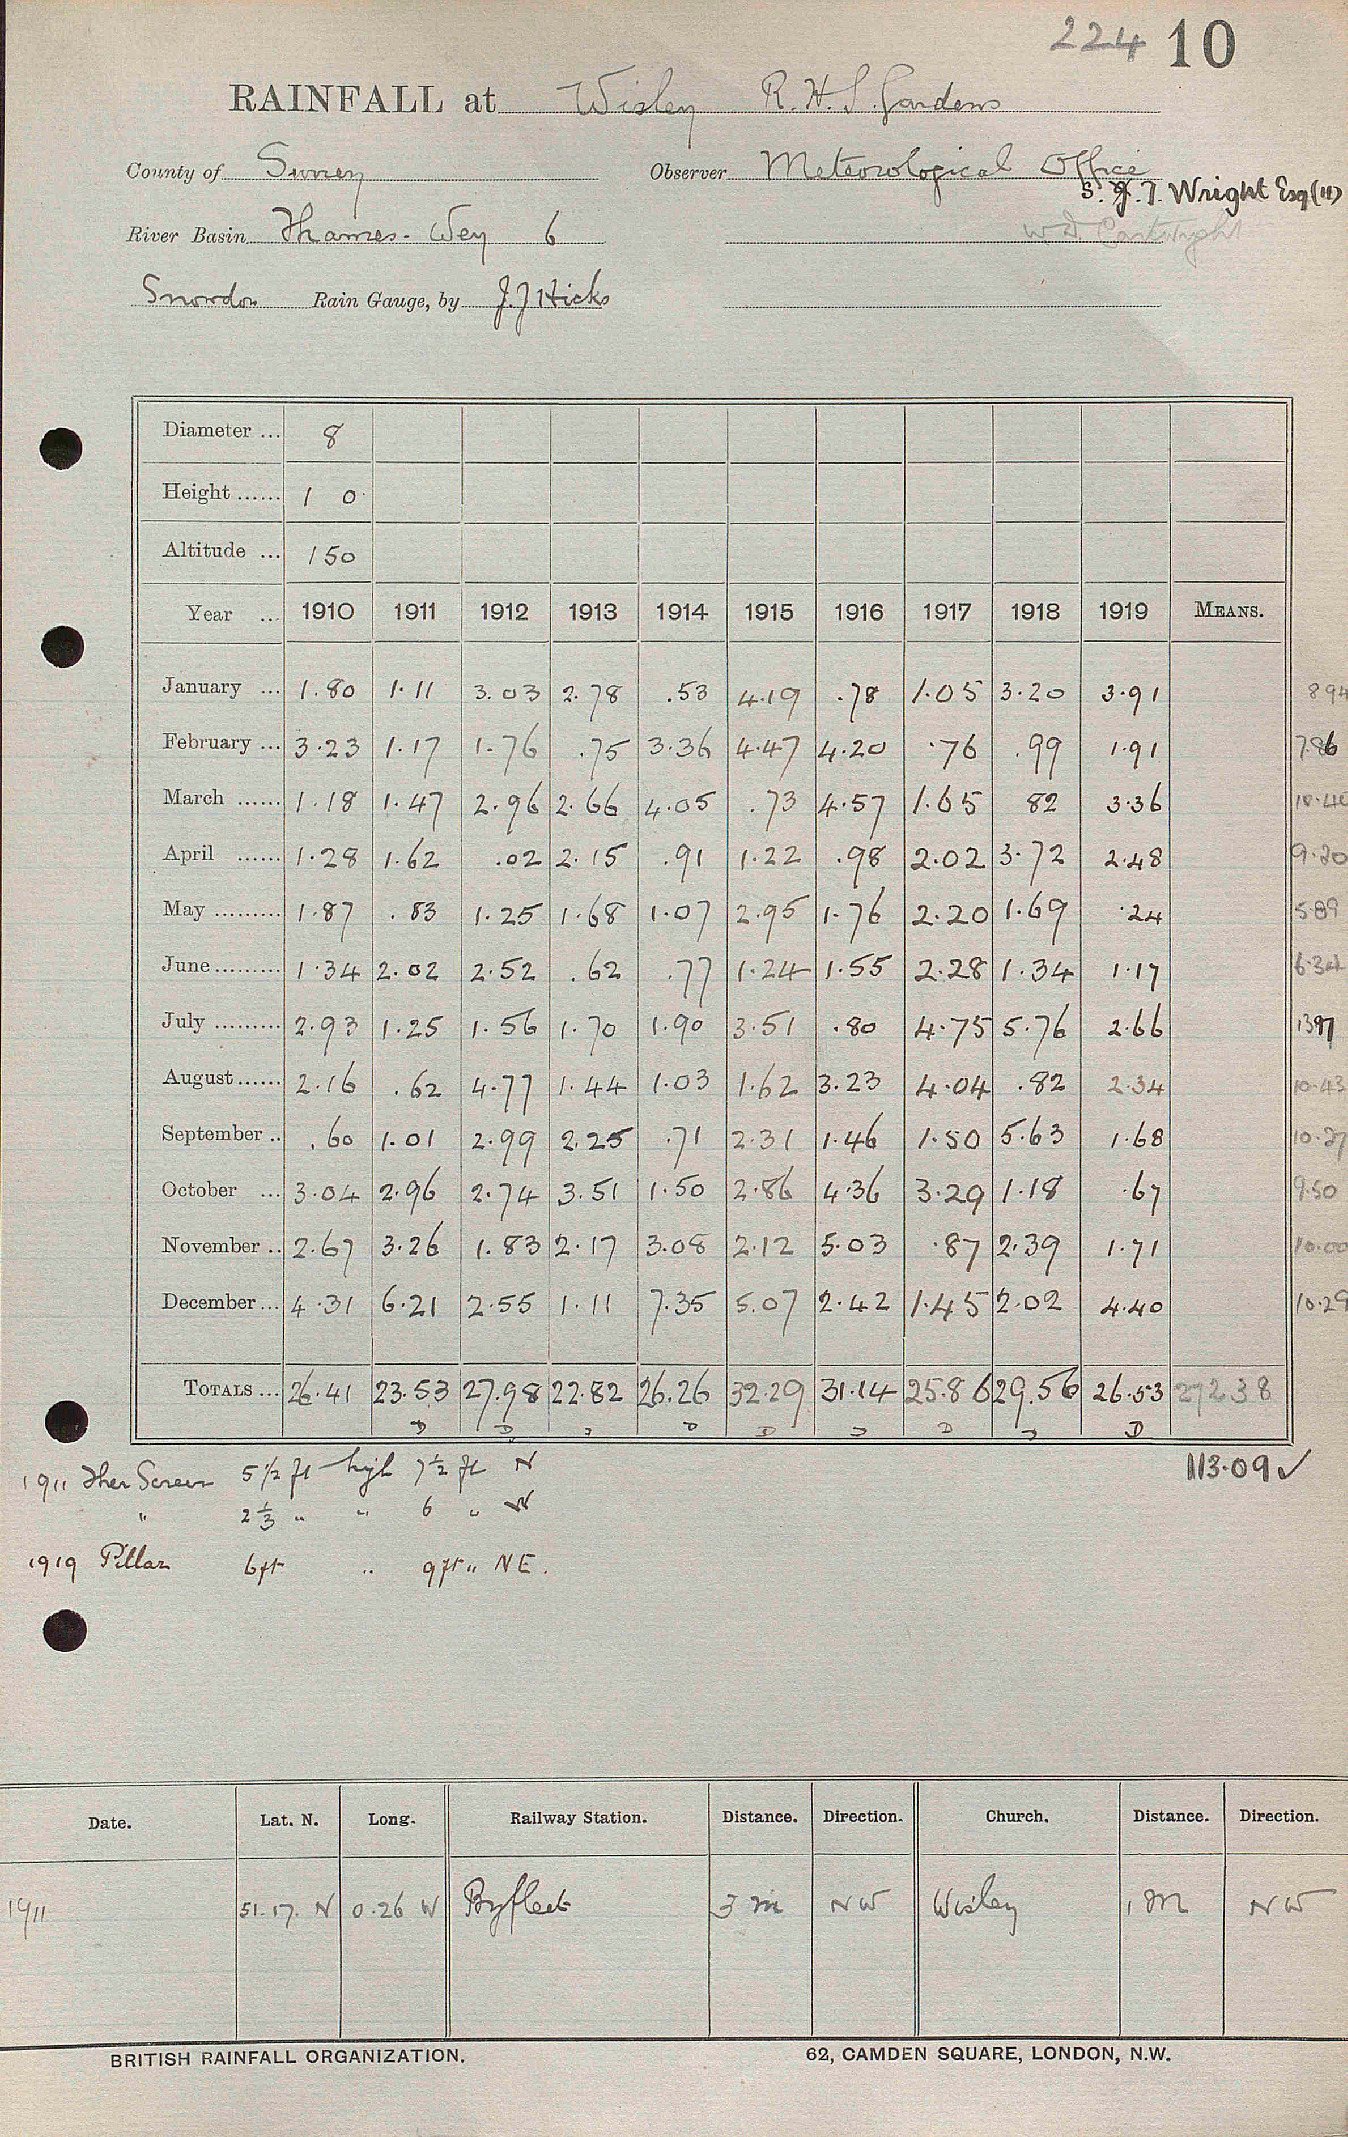 224 10
RAINFALL at Wisley R.H.S. Gardens
County of Surrey Observer Meteorological Office
S. J. T. Wright Esq (11)
River Basin Thames - Wey 6 W D Cartwright
Snowdon Rain Gauge, by J.J Hicks
Diameter ... 8
Height ...... 1 0
Altitude ... 150
Year ... 1910 1911 1912 1913 1914 1915 1916 1917 1918 1919 MEANS.
January ... 1.80 1.11 3.03 2.78 .53 4.19 .78 1.05 3.20 3.91 894
February ... 3.23 1.17 1.76 .75 3.36 4.47 4.20 .76 .99 1.91 7.86
March ...... 1.18 1.47 2.96 2.66 4.05 .73 4.57 1.65 82 3.36 10.40
April ...... 1.28 1.62 .02 2.15 .91 1.22 .98 2.02 3.72 2.48 9.20
May ......... 1.87 .83 1.25 1.68 1.07 2.95 1.76 2.20 1.69 .24 5.89
June ......... 1.34 2.02 2.52 .62 .77 1.24 1.55 2.28 1.34 1.17 6.34
July ......... 2.93 1.25 1.56 1.70 1.90 3.51 .80 4.75 5.76 2.66 1397
August ...... 2.16 .62 4.77 1.44 1.03 1.62 3.23 4.04 .82 2.34 10.43
September .. .60 1.01 2.99 2.25 .71 2.31 1.46 1.50 5.63 1.68 10.27
October ... 3.04 2.96 2.74 3.51 1.50 2.86 4.36 3.29 1.18 .67 9.50
November .. 2.67 3.26 1.83 2.17 3.08 2.12 5.03 .87 2.39 1.71 10.00
December ... 4.31 6.21 2.55 1.11 7.35 5.07 2.42 1.45 2.02 4.40 10.29
TOTALS ... 26.41 23.53 27.98 22.82 26.26 32.29 31.14 25.86 29.56 26.53 27238
113.09 ✓
1911 Ther Screen 5 1/2 ft high 7 1/2 ft N
" 2 1/3 " " 6 " W
1919 Pillar 6ft " 9ft " NE.
Date. Lat. N. Long. Railway Station. Distance. Direction. Church. Distance. Direction.
1911 51.17. N 0.26 W Byfleet 3 m NW Wisley 1 M NW
BRITISH RAINFALL ORGANIZATION. 62, CAMDEN SQUARE, LONDON, N.W.